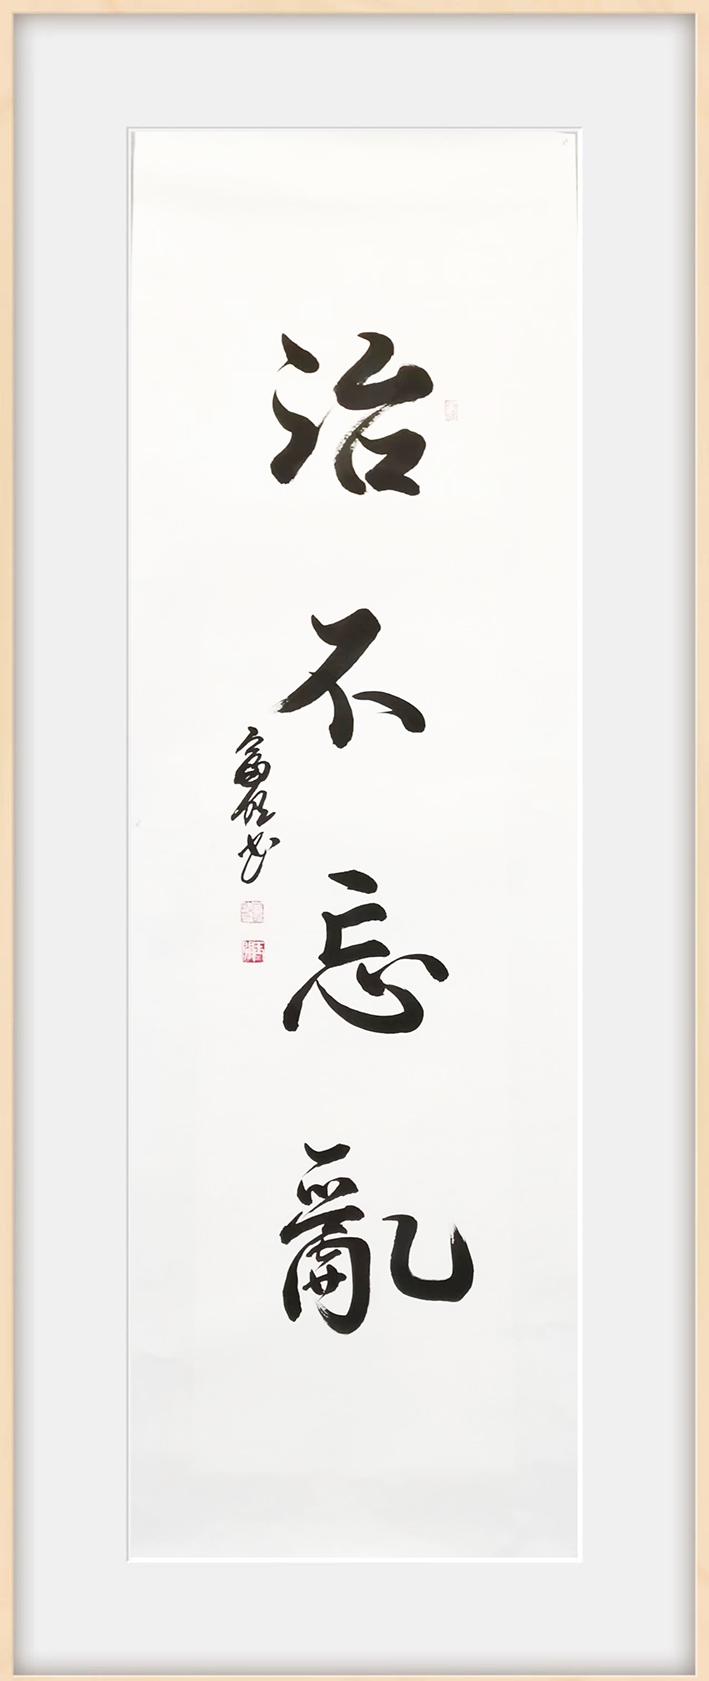 治不忘亂